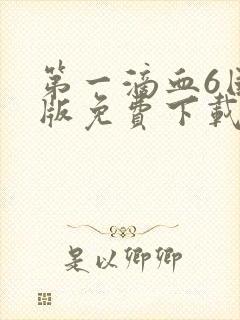 第一滴血6国
版免費下載
是以卿卿